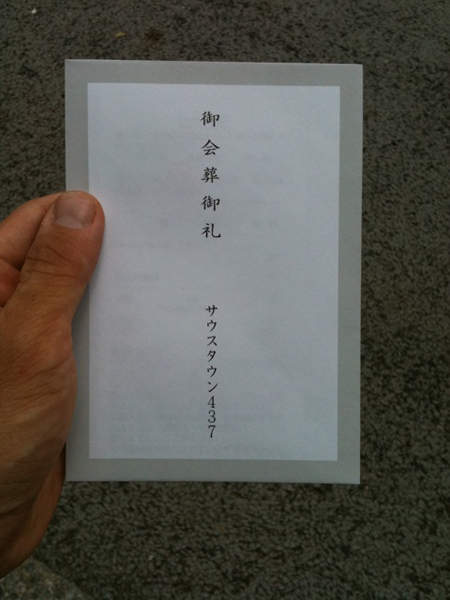 御会葬御礼
サウスタウン437